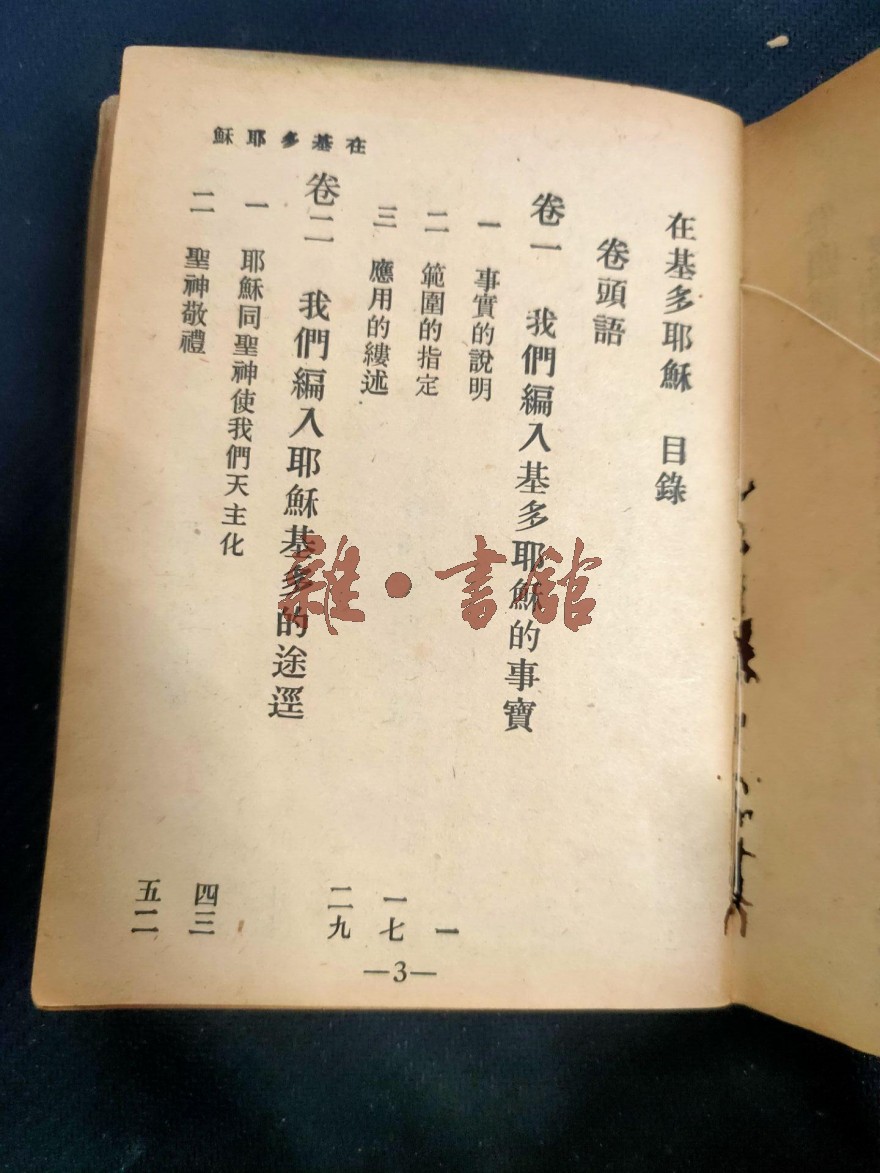 在基多耶穌　目錄
卷頭語
卷一　我們編入基多耶穌的事實
一　事實的說明　一
二　範圍的指定　一七
三　應用的縷述　二九
卷二　我們編入耶穌基多的途逕
一　耶穌同聖神使我們天主化　四三
二　聖神敬禮　五二
在基多耶穌
—3—
雜·書館